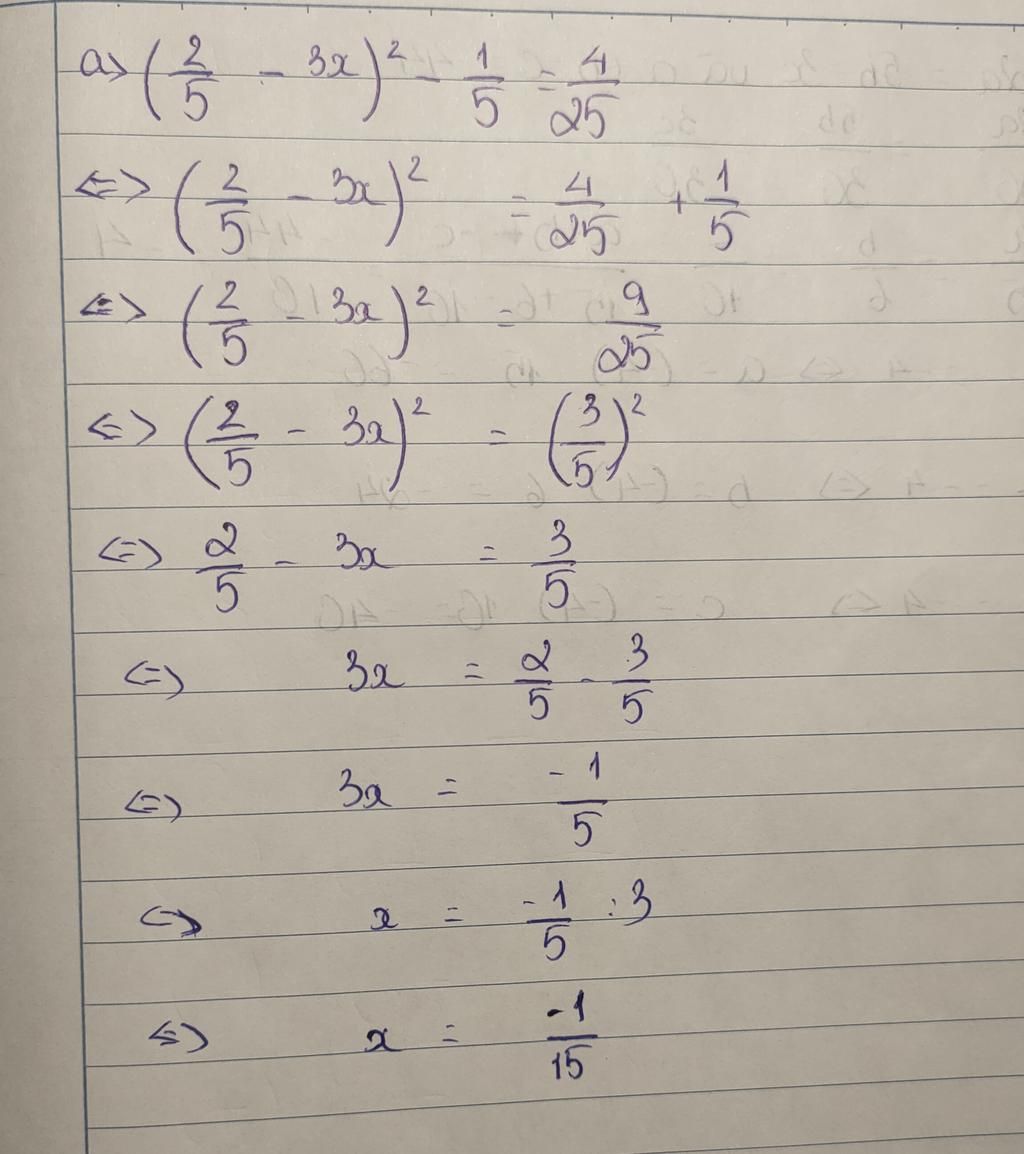 a> (2/5 - 3x)² - 1/5 = 4/25
<=> (2/5 - 3x)² = 4/25 + 1/5
<=> (2/5 - 3x)² = 9/25
<=> (2/5 - 3x)² = (3/5)²
<=> 2/5 - 3x = 3/5
<=> 3x = 2/5 - 3/5
<=> 3x = -1/5
<=> x = -1/5 : 3
<=> x = -1/15